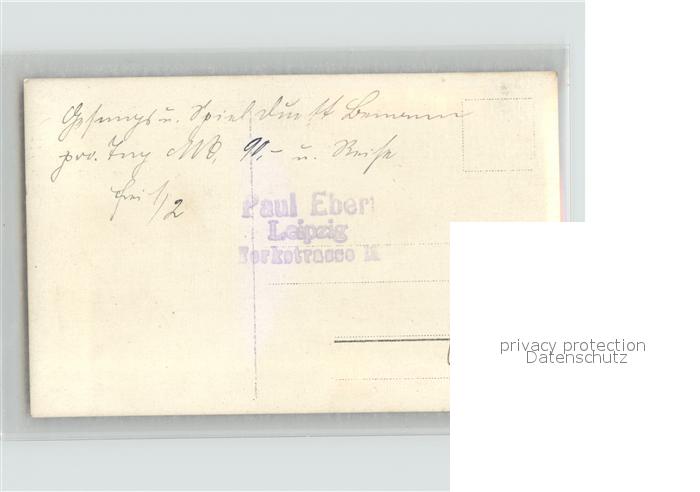 Gesangs u. Spiel Duett Bemann
pro. Tag Mk. 90,- u. Reise
frei 1/2
Paul Eber
Leipzig
Yorkstrasse
privacy protection
Datenschutz